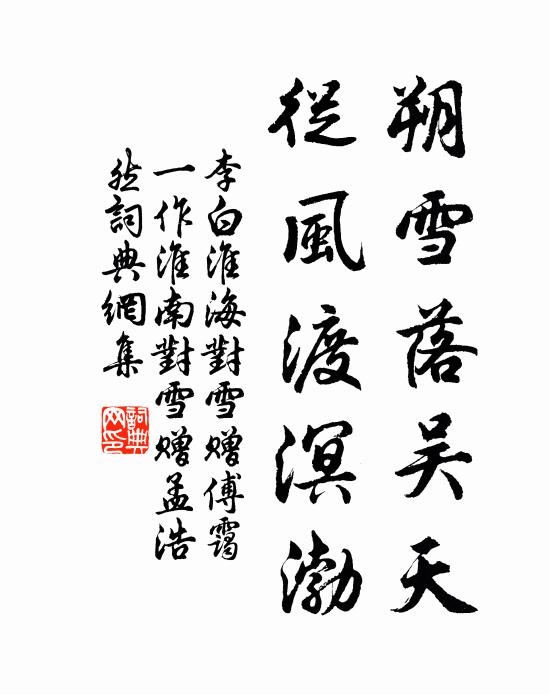 朔雪落吴天
從風渡溟渤
李白淮海對雪贈傅靄
一作淮南對雪贈孟浩
然詞典網集
詞典
网印